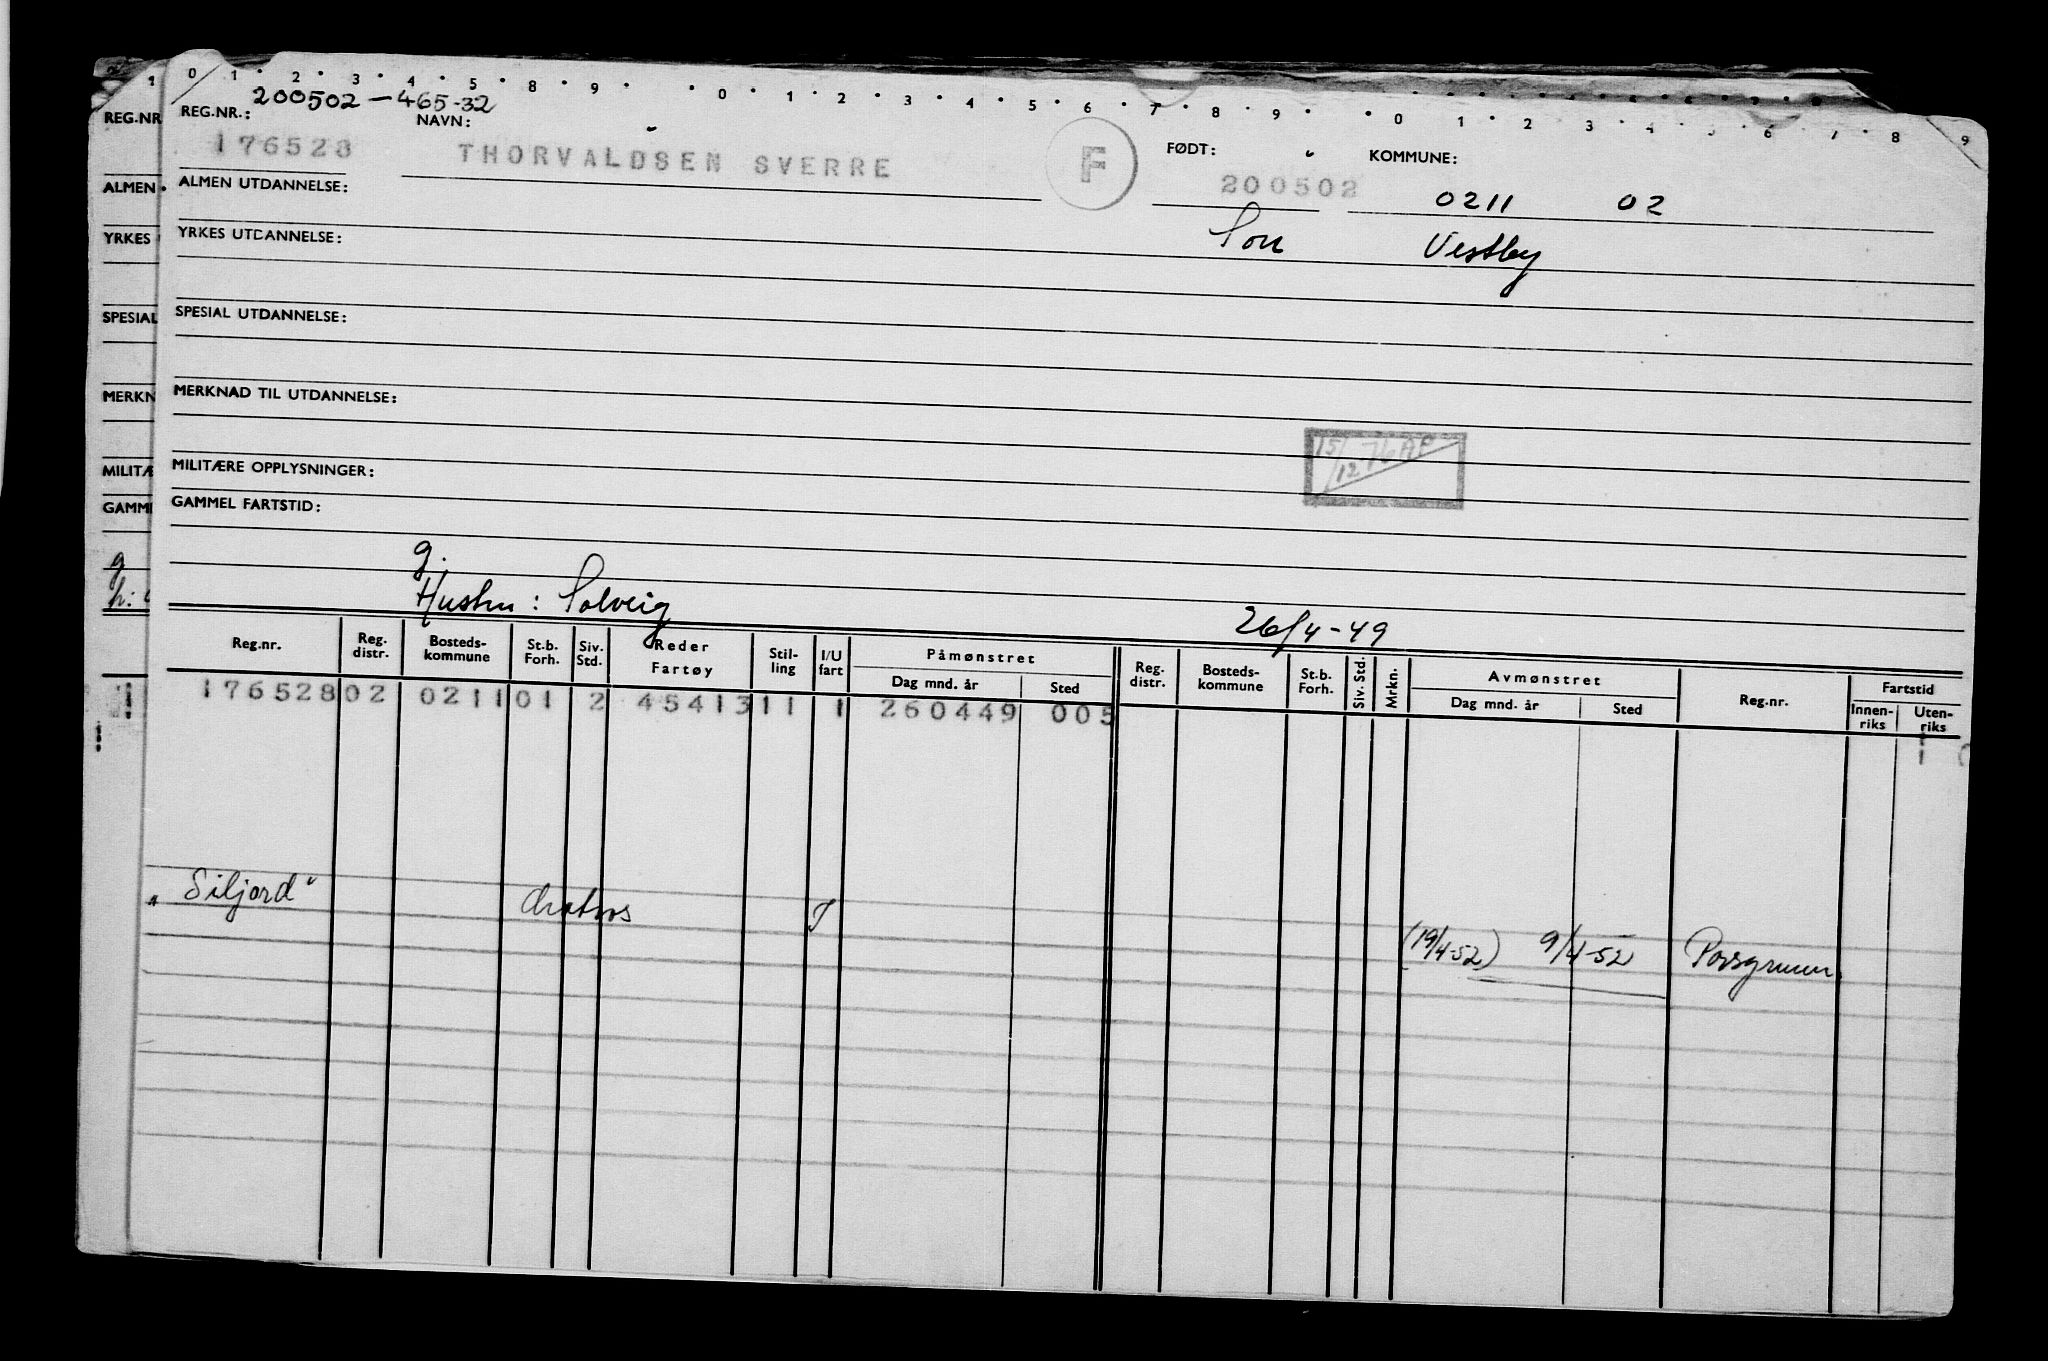 0 1 2 3 4 5 8 9 0 1 2 3 4 5 6 7 8 9 0 1 2 3 4 5 6 7 8 9
200502-465-32
REG.NR.: NAVN: FØDT: KOMMUNE:
176528 THORVALDSEN SVERRE F 200502 0211 02
ALMEN UTDANNELSE:
Son Vestby
YRKES UTDANNELSE:
SPESIAL UTDANNELSE:
MERKNAD TIL UTDANNELSE:
15/12 76 AP
MILITÆRE OPPLYSNINGER:
GAMMEL FARTSTID:
g.
Hustru: Solveig 26/4-49
Reg.nr. Reg. distr. Bosteds-kommune St.b. Forh. Siv. Std. Reder Fartøy Stil-ling I/U fart Påmønstret Dag mnd. år Sted Reg. distr. Bosteds-kommune St.b. Forh. Siv. Std. Mrkn. Avmønstret Dag mnd. år Sted Reg.nr. Fartstid Innen-riks Uten-riks
176528 02 0211 01 2 45413 11 1 260449 005
1
"Siljord" I
(19/4-52) 9/4-52 Porsgrunn
REG.NR
ALMEN
YRKES
SPESIAL
MERKN
MILITÆ
GAMME
g
h: